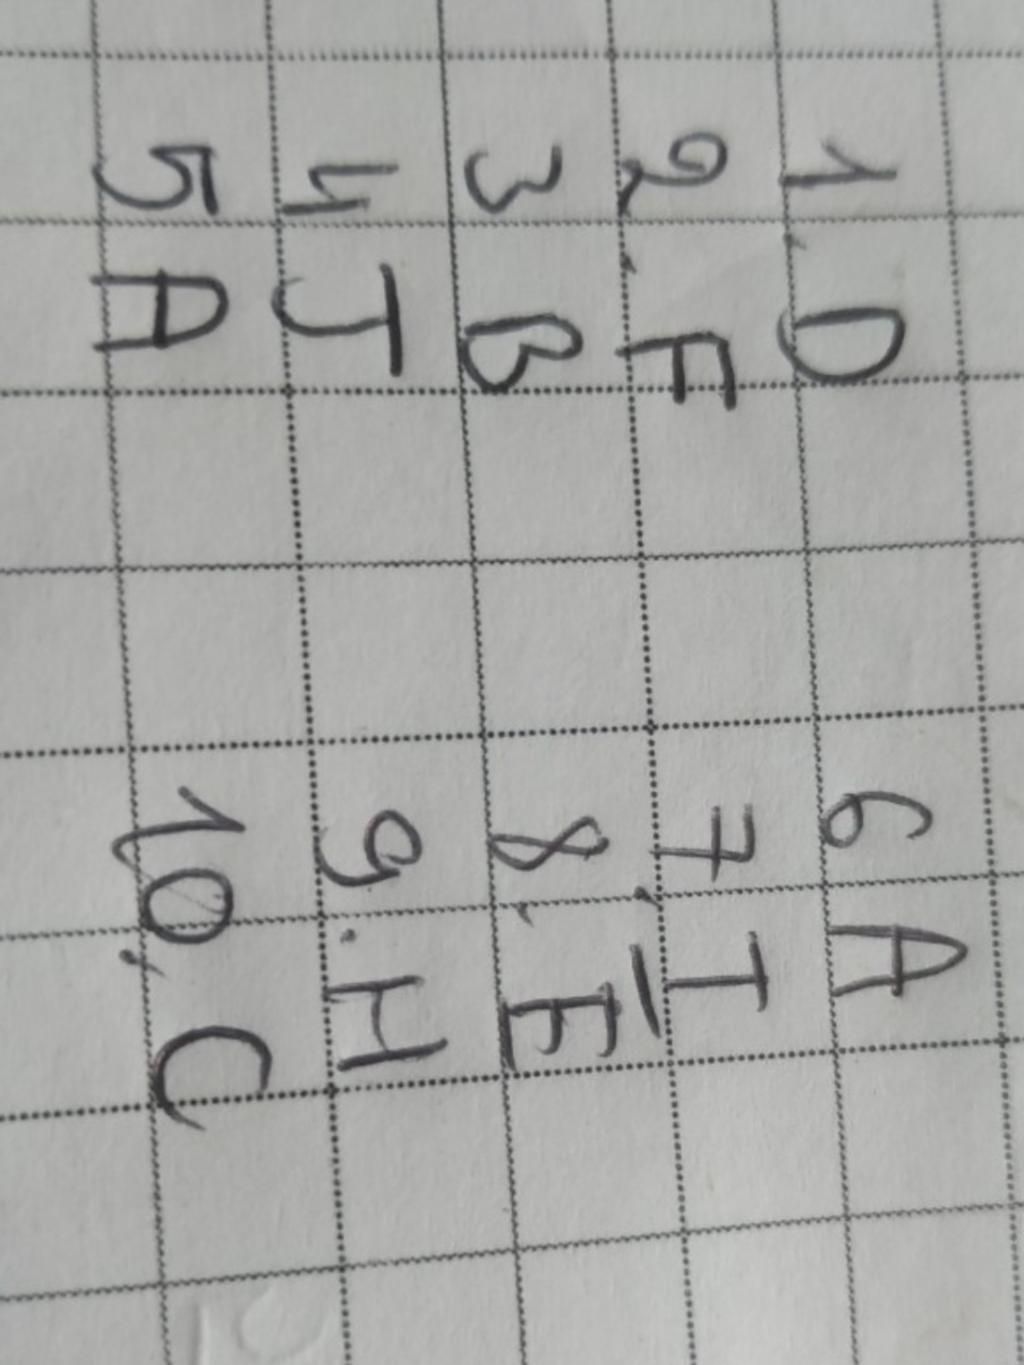 1. D 6 A
2. F 7. I
3 B 8. E
4 J 9. H
5 A 10. C